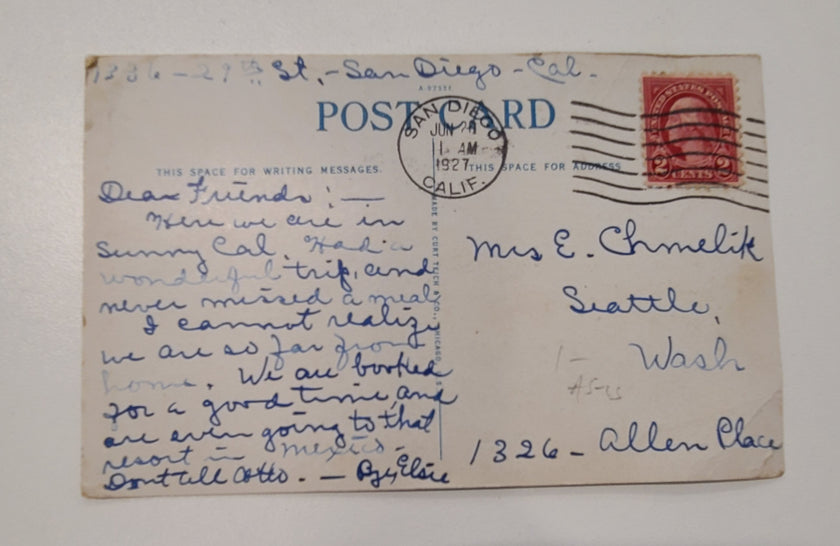 1336 - 29th St, - San Diego - Cal.
A-97331
POST CARD
SAN DIEGO
JUN
1 - AM
1927
CALIF.
UNITED STATES POSTAGE
2 2
CENTS
THIS SPACE FOR WRITING MESSAGES.
THIS SPACE FOR ADDRESS
Dear Friends: —
Here we are in
Sunny Cal. Had a
wonderful trip, and
never missed a meal.
I cannot realize
we are so far from
home. We are booked
for a good time, and
are even going to that
resort in Mexico -
Dont tell Otto. — By, Elsie
MADE BY CURT TEICH & CO., CHICAGO, U.S.
Mrs E. Chmelik
Seattle,
Wash
1326 - Allen Place
1-